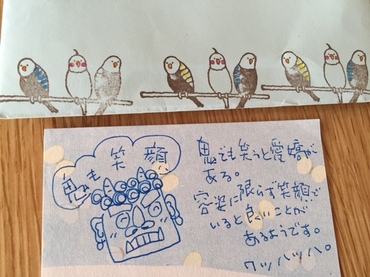 鬼も笑顔
鬼でも笑うと愛嬌が
ある。
容姿に限らず笑顔で
いると良いことが
あるようです。
ワッハッハ。